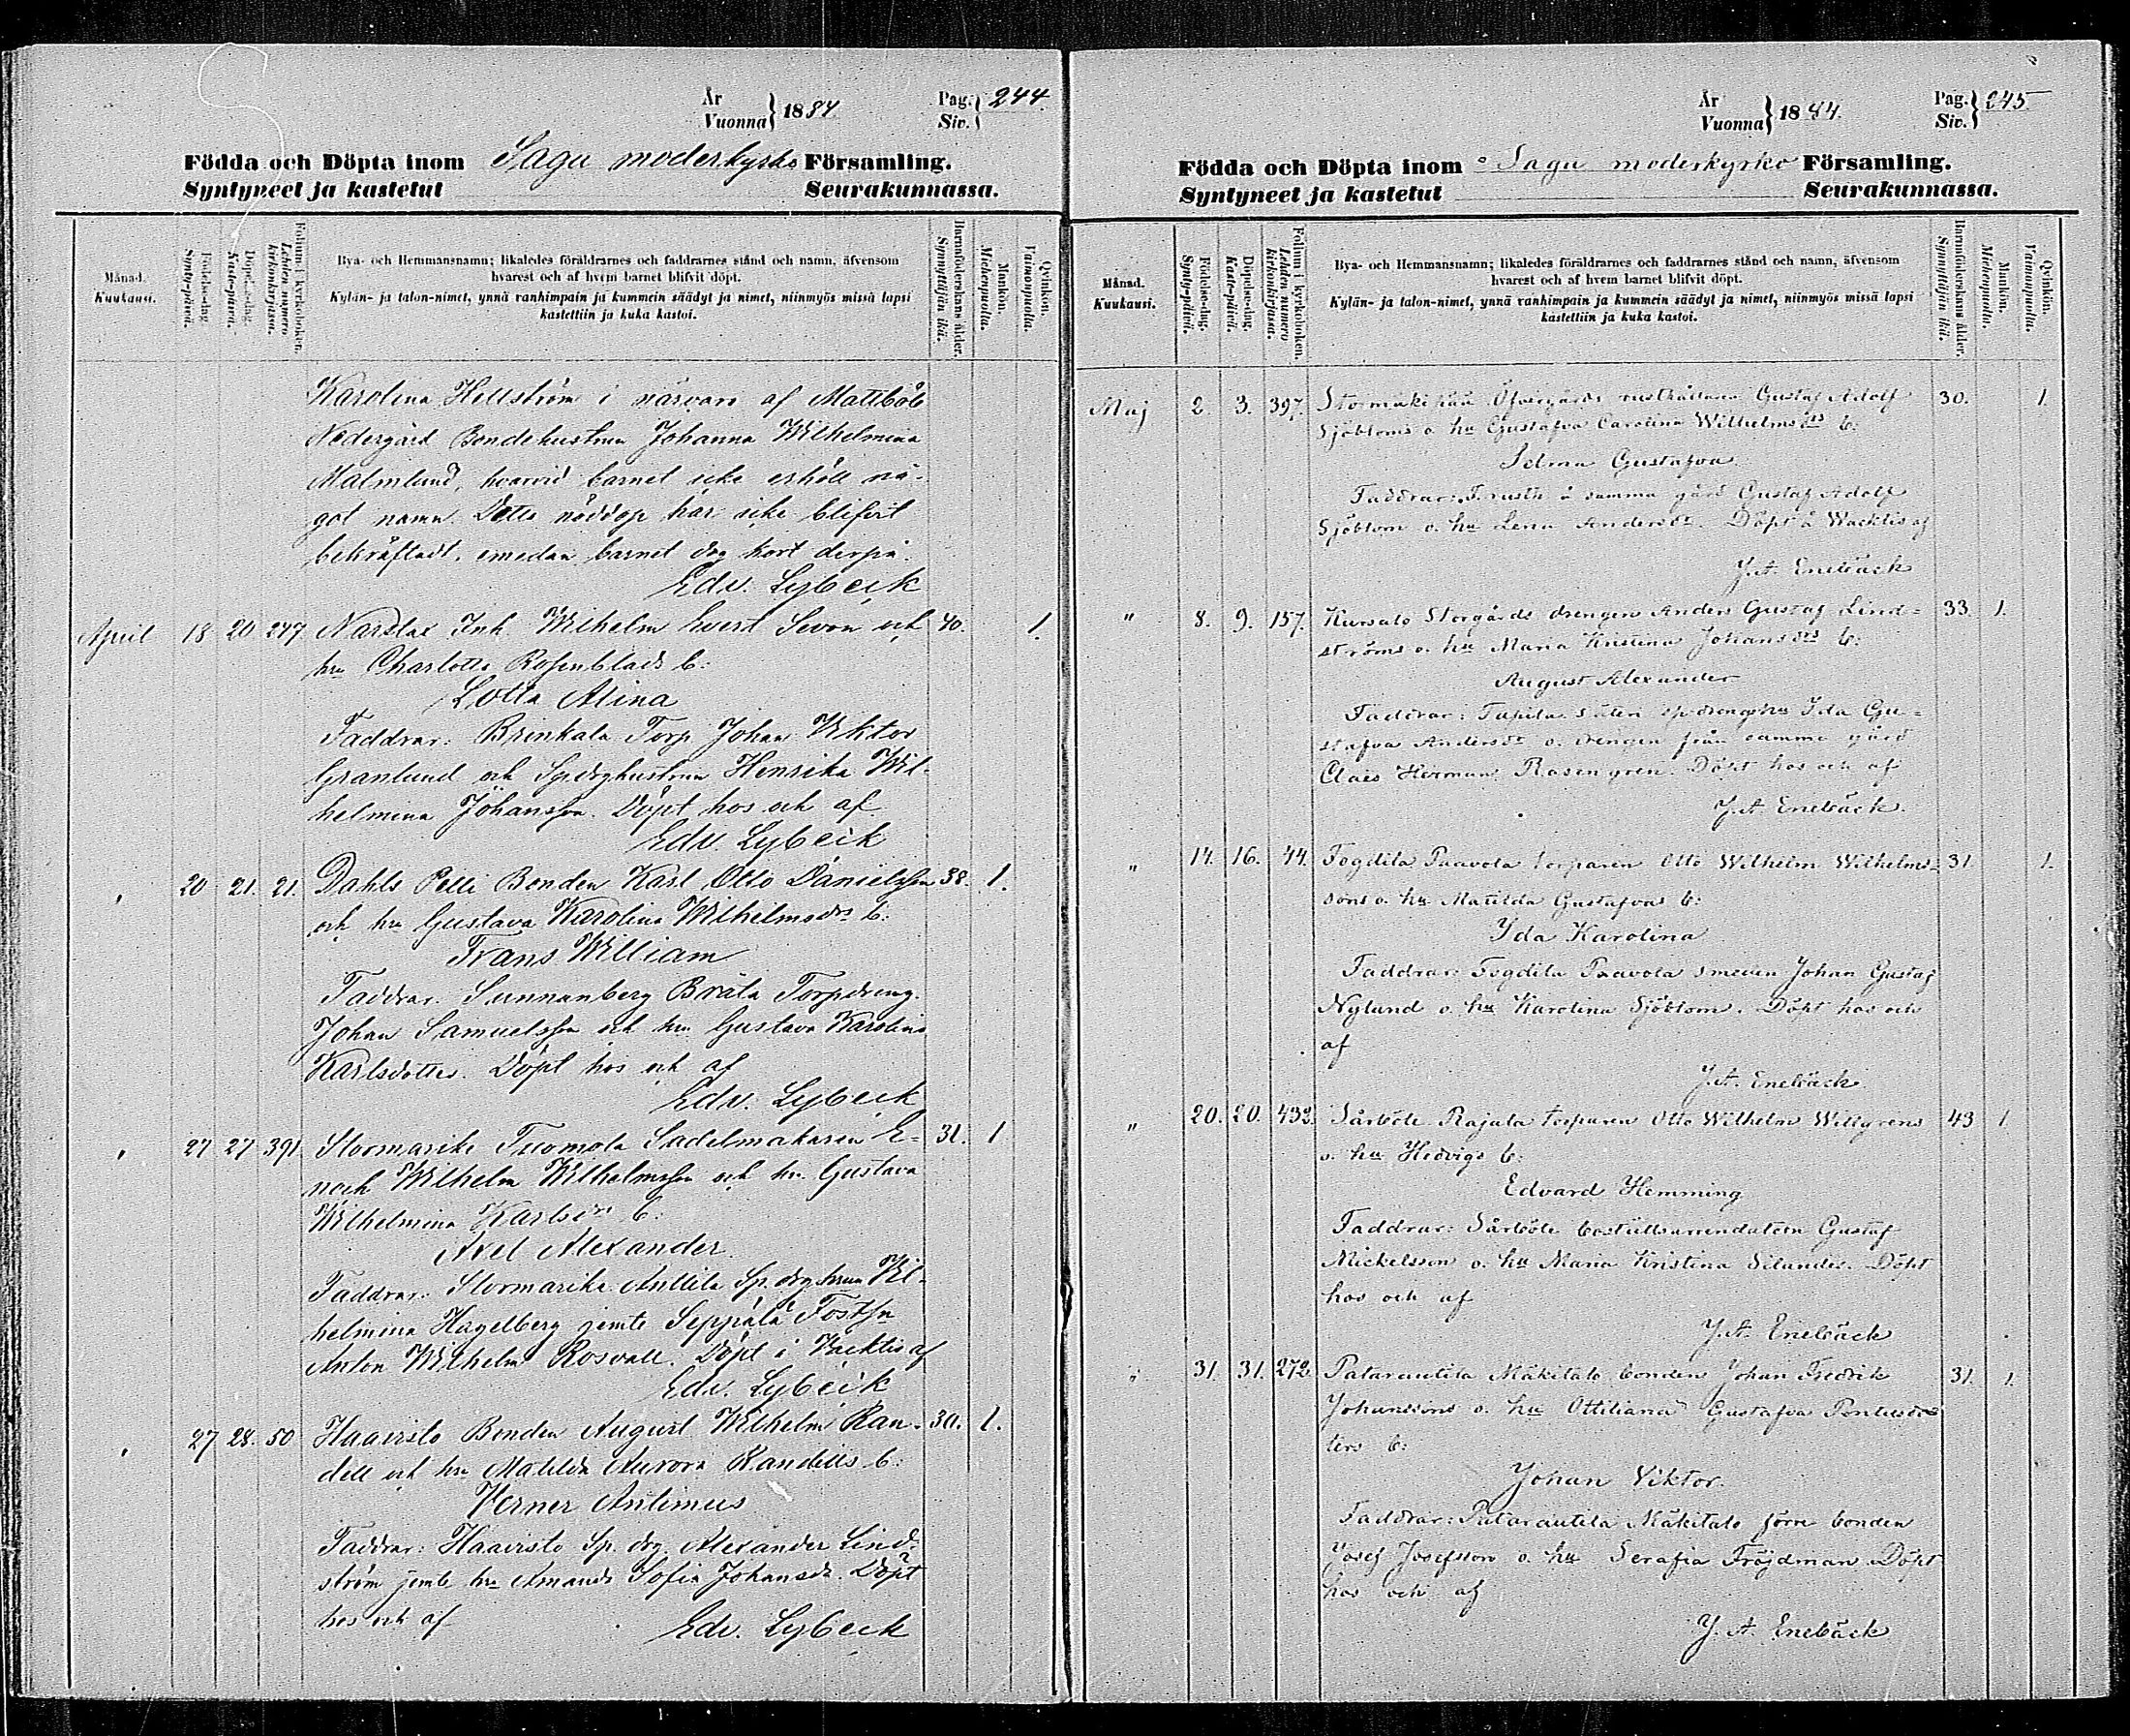 År
Vuonna } 1884. Pag. Siv. } 244.
Födda och Döpta inom Sagu moderkyrko Församling.
Syntyneet ja kastetut Seurakunnassa.
Månad.
Kuukausi.
Födelse-dag.
Synty-päivä.
Döpelse-dag.
Kaste-päivä.
Folium i kyrkoboken.
Lehden numero kirkonkirjassa.
Bya- och Hemmansnamn; likaledes föräldrarnes och faddrarnes stånd och namn, äfvensom
hvarest och af hvem barnet blifvit döpt.
Kylän- ja talon-nimet, ynnä vanhimpain ja kummein säädyt ja nimet, niinmyös missä lapsi
kastettiin ja kuka kastoi.
Barnföderskans ålder.
Synnyttäjän ikä.
Mankön.
Miehenpuolta.
Qvinkön.
Vaimonpuolta.
Karolina Hellström i närvaro af Mattböle
Nedergård Bondehustrun Johanna Wilhelmina
Malmlund, hvarvid barnet icke erhöll nå-
got namn. Detta nöddop har icke blifvit
bekräftadt, emedan barnet dog kort derpå.
Edv. Lybeck
April 18 20 247 Narstax Inh. Wilhelm Evert Sevon och 40. 1.
hu Charlotta Rosenblads b:
Lotta Alina
Faddrar: Brinkala Torp. Johan Viktor
Granlund och Sp.drghustrun Henrika Wil-
helmina Johansson. Döpt hos och af
Edv. Lybeck
" 20 21. 21. Dahls Pelli Bonden Karl Otto Danielsson 38. 1.
och hu Gustava Karolina Wilhelmsdrs b:
Frans William
Faddrar. Sunnanberg Bråta Torpdreng.
Johan Samuelsson och hu Gustava Karolina
Karlsdotter. Döpt hos och af
Edv. Lybeck
" 27 27 391 Stormarike Tuomola Sadelmakaren E- 31. 1
noch Wilhelm Wilhelmsson och hu Gustava
Wilhelmina Karlsdrs b:
Axel Alexander
Faddrar: Stormarike Anttila Sp. drg.hrun Vil-
helmina Hagelberg jemte Seppälä Fostsn
Anton Wilhelm Rosvall. Döpt i Vacktis af
Edv. Lybeck
" 27 28. 50 Haavisto Bonden August Wilhelm Ran- 30. 1.
dell och hu Matilda Aurora Randells b:
Verner Antimus
Faddrar: Haavisto Sp. drg. Alexander Lind-
ström jemte hu Amanda Sofia Johansdr. Döpt
hos och af
Edv. Lybeck
År
Vuonna } 1884. Pag. Siv. } 245
Födda och Döpta inom Sagu moderkyrko Församling.
Syntyneet ja kastetut Seurakunnassa.
Månad.
Kuukausi.
Födelse-dag.
Synty-päivä.
Döpelse-dag.
Kaste-päivä.
Folium i kyrkoboken.
Lehden numero kirkonkirjassa.
Bya- och Hemmansnamn; likaledes föräldrarnes och faddrarnes stånd och namn, äfvensom
hvarest och af hvem barnet blifvit döpt.
Kylän- ja talon-nimet, ynnä vanhimpain ja kummein säädyt ja nimet, niinmyös missä lapsi
kastettiin ja kuka kastoi.
Barnföderskans ålder.
Synnyttäjän ikä.
Mankön.
Miehenpuolta.
Qvinkön.
Vaimonpuolta.
Maj 2. 3. 397. Öfvergårds rusthållaren Gustaf Adolf 30. 1.
Sjöbloms o. hu Gustafva Carolina Wilhelmsdrs b:
Selma Gustafva
Faddrar: F. rusth å samma gård Gustaf Adolf
Sjöblom o. hu Lena Andersdr. Döpt å Wacktis af
J.A. Enebäck
" 8. 9. 157. Kursalo Storgårds drengen Anders Gustaf Lind- 33. 1.
ströms o. hu Maria Kristina Johansdrs b:
August Alexander
Faddrar: Säteri sp.drengshu Ida Gu-
stafva Andersdr o. drengen från samma gård
Claes Herman Rosengren. Döpt hos och af
J.A. Enebäck.
" 14. 16. 44. Fogdila Paavola torparen Otto Wilhelm Wilhelms- 31 1.
sons o. hu Matilda Gustafvas b:
Ida Karolina
Faddrar: Fogdila Paavola smeden Johan Gustaf
Nylund o. hu Karolina Sjöblom. Döpt hos och
af
J.A. Enebäck
" 20. 20. 432. Särböle Rajala torparen Otto Wilhelm Willgrens 43 1
o. hu Hedvigs b:
Edvard Hemming
Faddrar: Särböle boställsarrendatorn Gustaf
Mickelsson o. hu Maria Kristina Silander. Döpt
hos och af
J.A. Enebäck
" 31. 31. 272. Patarautila Mäkitalo bonden Johan Fredrik 31. 1.
Johanssons o. hu Ottiliana Gustafva Pontusdot-
ters b:
Johan Viktor.
Faddrar: Patarautila Mäkitalo förre bonden
Josef Josefsson o. hu Serafia Fröjdman. Döpt
hos och af
J. A. Enebäck